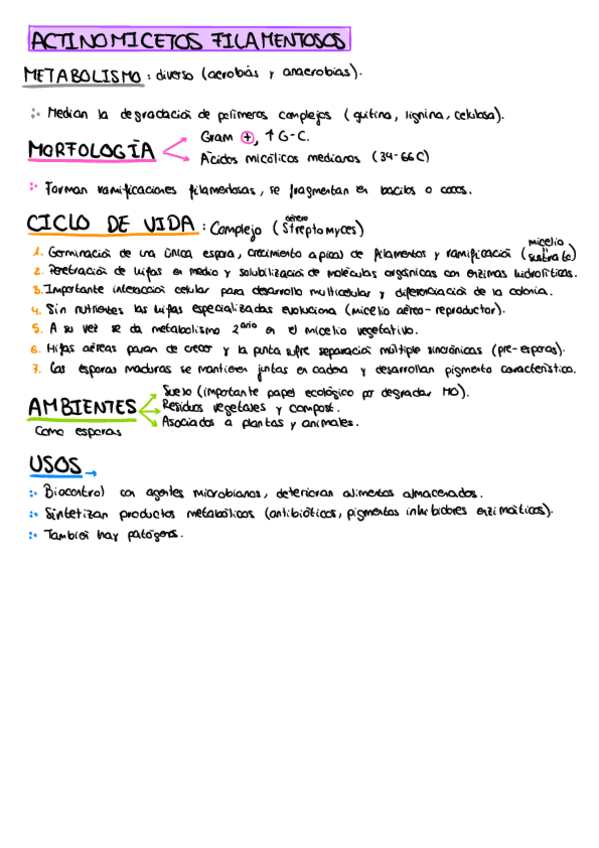 ACTINOMICETOS FILAMENTOSOS
METABOLISMO: diverso (aerobias y anaerobias).
Median la degradación de polímeros complejos (quitina, lignina, celulosa).
MORFOLOGÍA
Gram +, ↑ G-C.
Ácidos micólicos medianos (34-66C)
Forman ramificaciones filamentosas, se fragmentan en bacilos o cocos.
CICLO DE VIDA: Complejo (Streptomyces)
aéreo
1. Germinación de una única espora, crecimiento apical de filamentos y ramificación (micelio sustrato)
2. Penetración de hifas en medio y solubilización de moléculas orgánicas con enzimas hidrolíticas.
3. Importante interacción celular para desarrollo multicelular y diferenciación de la colonia.
4. Sin nutrientes las hifas especializadas evoluciona (micelio aéreo-reproductor).
5. A su vez se da metabolismo 2ario en el micelio vegetativo.
6. Hifas aéreas paran de crecer y la punta sufre separación múltiple sincrónicas (pre-esporas).
7. Las esporas maduras se mantienen juntas en cadena y desarrollan pigmento característico.
AMBIENTES
Como esporas
Suelo (importante papel ecológico por degradar MO).
Residuos vegetales y compost.
Asociados a plantas y animales.
USOS →
Biocontrol con agentes microbianos, deterioran alimentos almacenados.
Sintetizan productos metabólicos (antibióticos, pigmentos inhibidores enzimáticos).
También hay patógenos.